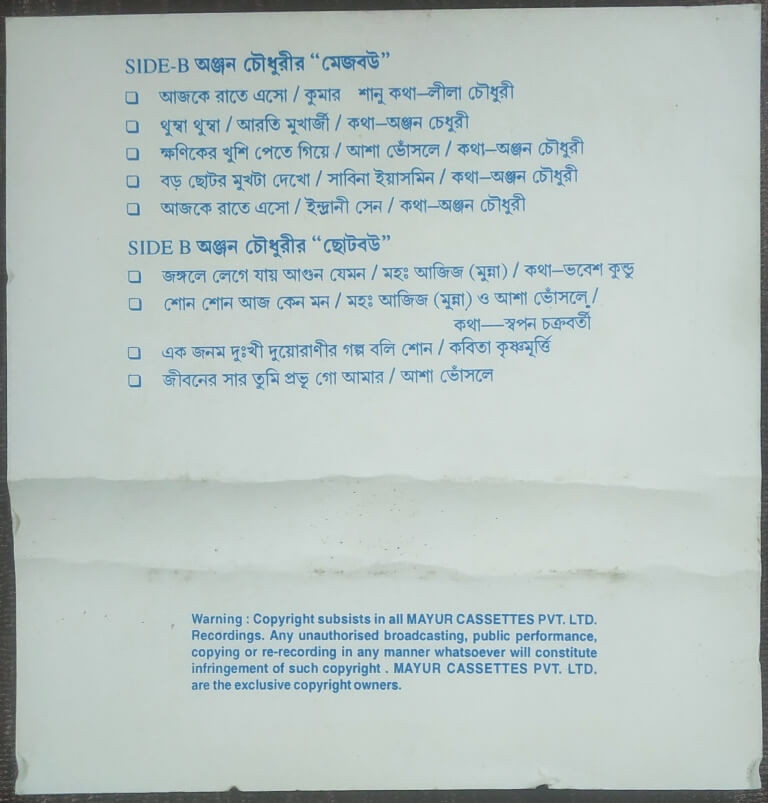 SIDE-B অঞ্জন চৌধুরীর “মেজবউ”
❑ আজকে রাতে এসো / কুমার শানু কথা–লীলা চৌধুরী
❑ থুম্বা থুম্বা / আরতি মুখার্জী / কথা–অঞ্জন চেধুরী
❑ ক্ষণিকের খুশি পেতে গিয়ে / আশা ভোঁসলে / কথা–অঞ্জন চৌধুরী
❑ বড় ছোটর মুখটা দেখো / সাবিনা ইয়াসমিন / কথা–অঞ্জন চৌধুরী
❑ আজকে রাতে এসো / ইন্দ্রানী সেন / কথা–অঞ্জন চৌধুরী
SIDE B অঞ্জন চৌধুরীর “ছোটবউ”
❑ জঙ্গলে লেগে যায় আগুন যেমন / মহঃ আজিজ (মুন্না) / কথা–ভবেশ কুন্ডু
❑ শোন শোন আজ কেন মন / মহঃ আজিজ (মুন্না) ও আশা ভোঁসলে /
কথা—স্বপন চক্রবর্তী
❑ এক জনম দুঃখী দুয়োরাণীর গল্প বলি শোন / কবিতা কৃষ্ণমূর্ত্তি
❑ জীবনের সার তুমি প্রভূ গো আমার / আশা ভোঁসলে
Warning : Copyright subsists in all MAYUR CASSETTES PVT. LTD.
Recordings. Any unauthorised broadcasting, public performance,
copying or re-recording in any manner whatsoever will constitute
infringement of such copyright . MAYUR CASSETTES PVT. LTD.
are the exclusive copyright owners.